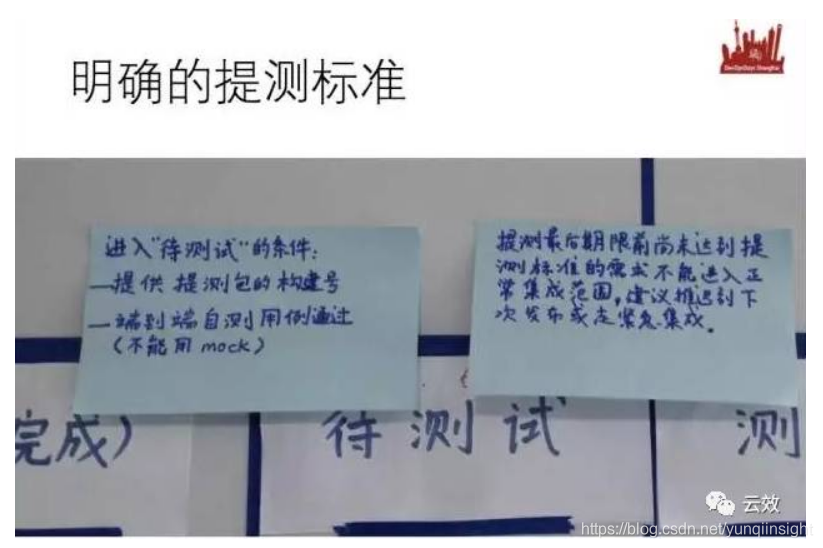 明确的提测标准
DevOpsDays Shanghai
进入"待测试"的条件：
—提供 提测包的构建号
—端到端自测用例通过
（不能用 mock）
提测最后期限前尚未达到提
测标准的需求不能进入正
常集成范围，建议推迟到下
次发布或走紧急集成。
完成）
待测试
测
云效
https://blog.csdn.net/yunqiinsight